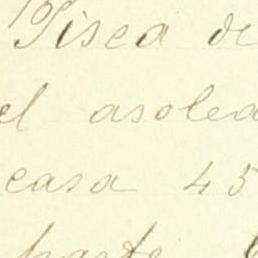 Pisca de
el asolea
casa 45
parte